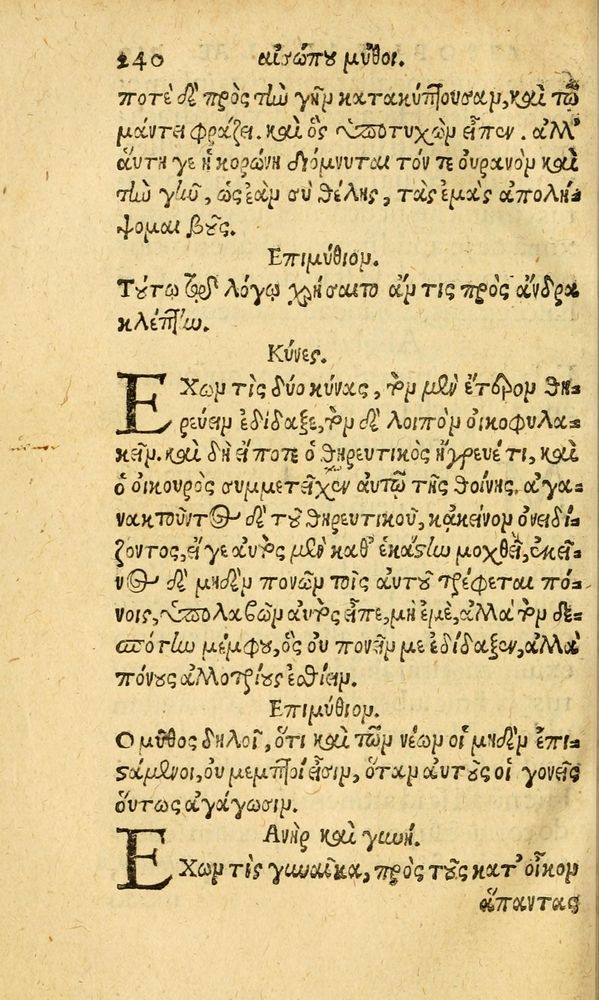 240 αἰσώπου μῦθοι.
ποτὲ δὲ πρὸς τὴν γῆν κατακύπτουσαν, καὶ τῷ
μάντει φράζει. καὶ ὃς ὑποτυχὼν εἶπεν. ἀλλ’
αὕτη γε ἡ κορώνη διόμνυται τόν τε ουρανὸν καὶ
τὴν γῆν, ὡς ἐὰν σὺ θέλῃς, τὰς ἐμὰς ἀπολή-
ψομαι βοῦς.
Επιμύθιον.
Τούτῳ τῷ λόγῳ χρήσαιτο ἄν τις πρὸς ἄνδρα
κλέπτην.
Κύνες.
ΕΧων τὶς δύο κύνας, τὸν μὲν ἕτερον θη-
ρεύειν ἐδίδαξε, τὸν δὲ λοιπὸν οἰκοφυλα-
κεῖν. καὶ δὴ εἴποτε ὁ θηρευτικὸς ἤγρευέ τι, καὶ
ὁ οἰκουρὸς συμμετεῖχεν αὐτῷ τῆς θοίνης. ἀγα-
νακτοῦντος δὲ τοῦ θηρευτικοῦ, κἀκεῖνον ὀνειδί-
ζοντος, εἴγε αὐτὸς μὲν καθ’ ἑκάστην μοχθεῖ, ἐκεῖ-
νος δὲ μηδὲν πονῶν τοῖς αὐτοῦ τρέφεται πό-
νοις, ὑπολαβὼν αὐτὸς εἶπε, μὴ ἐμὲ, ἀλλὰ τὸν δε-
σπότην μέμφου, ὃς οὐ πονεῖν με ἐδίδαξεν, ἀλλὰ
πόνους ἀλλοτρίους ἐσθίειν.
Επιμύθιον.
Ο μῦθος δηλοῖ, ὅτι καὶ τῶν νέων οἱ μηδὲν ἐπι-
στάμενοι, οὐ μεμπτοί εἰσιν, ὅταν αὐτοὺς οἱ γονεῖς
οὕτως ἀγάγωσιν.
Ανὴρ καὶ γυνή.
ΕΧων τὶς γυναῖκα, πρὸς τοὺς κατ’ οἶκον
ἅπαντας